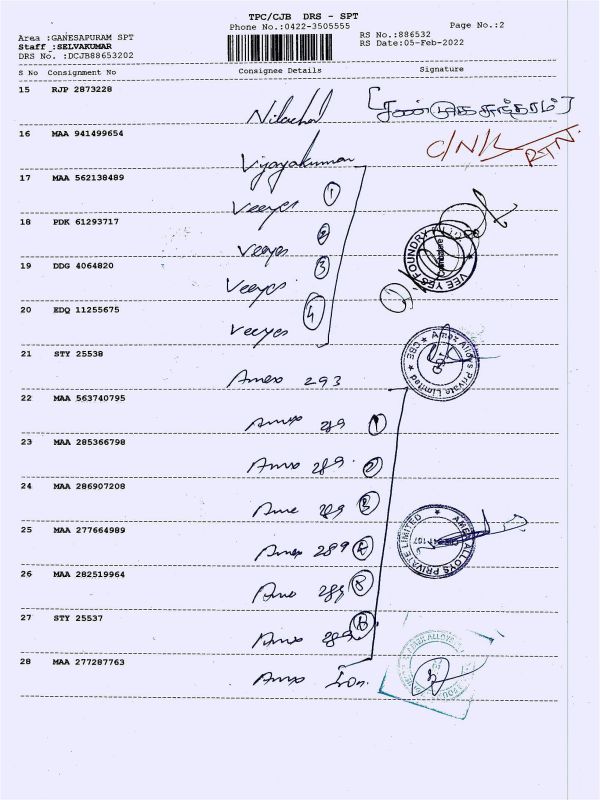 TPC/CJB DRS - SPT
Phone No.:0422-3505555
Page No.:2
Area :GANESAPURAM SPT
RS No.:886532
Staff :SELVAKUMAR
RS Date:05-Feb-2022
DRS No. :DCJB88653202
S No Consignment No Consignee Details Signature
15 RJP 2873228
16 MAA 941499654
C/N/
RTN.
Vijayakumar
17 MAA 562138489 1
Veeyes
18 PDK 61293717 2
Veeyes
19 DDG 4064820 3
Veeyes
VEE YES FOUNDRY ALLOYS
Coimbatore
20 EDQ 11255675 4
Veeyes
21 STY 25538
Amex 293
Amex Alloys Private Limited ★ CBE ★
22 MAA 563740795
Amex 289 1
23 MAA 285366798
Amex 289 2
24 MAA 286907208
Ame 289 3
25 MAA 277664989
Amex 289 4
AMEX ALLOYS PRIVATE LIMITED ★
26 MAA 282519964
Amex 289 5
27 STY 25537
Amex 289 6
28 MAA 277287763
Amex